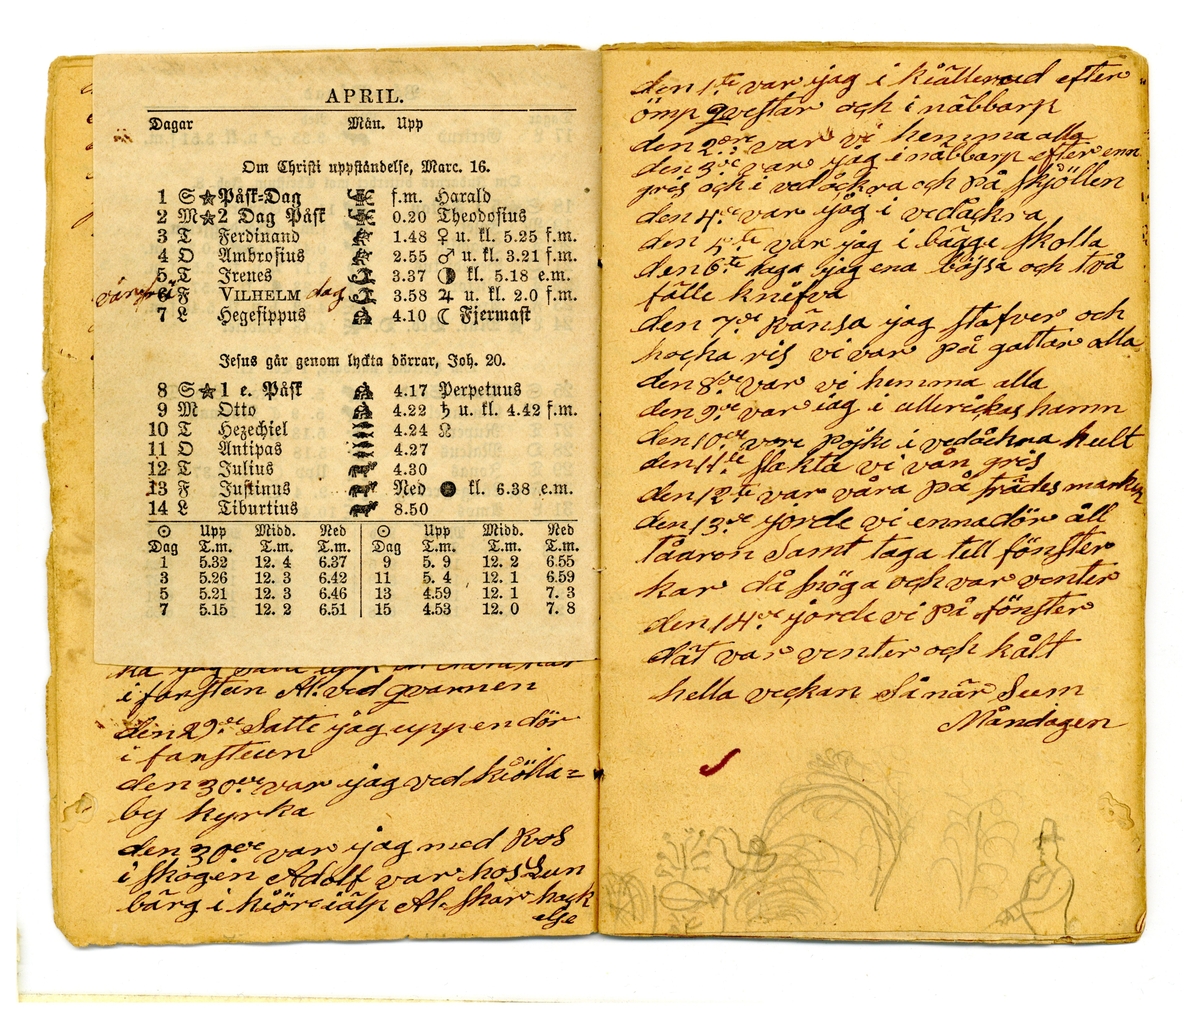 APRIL.
Dagar Mån. Upp
Om Christi uppståndelse, Marc. 16.
1 S Påsk-Dag f.m. Harald
2 M 2 Dag Påsk 0.20 Theodosius
3 T Ferdinand 1.48 ♀ u. kl. 5.25 f.m.
4 O Ambrosius 2.55 ♂ u. kl. 3.21 f.m.
5 T Irenes 3.37 kl. 5.18 e.m.
6 F VILHELM dag 3.58 ♃ u. kl. 2.0 f.m.
7 L Hegesippus 4.10 ☾ Fjermast
Jesus går genom lyckta dörrar, Joh. 20.
8 S 1 e. Påsk 4.17 Perpetuus
9 M Otto 4.22 ♄ u. kl. 4.42 f.m.
10 T Hezechiel 4.24 ☊
11 O Antipas 4.27
12 T Julius 4.30
13 F Justinus Ned ● kl. 6.38 e.m.
14 L Tiburtius 8.50
☉ Upp Midd. Ned ☉ Upp Midd. Ned
Dag T.m. T.m. T.m. Dag T.m. T.m. T.m.
1 5.32 12. 4 6.37 9 5. 9 12. 2 6.55
3 5.26 12. 3 6.42 11 5. 4 12. 1 6.59
5 5.21 12. 3 6.46 13 4.59 12. 1 7. 3
7 5.15 12. 2 6.51 15 4.53 12. 0 7. 8
i farsteen Al. ved qvarnen
den 29de Satte jag upp en dör
i farsteen
den 30de var jag ved kiölla=
by kyrka
den 30de var jag med Ros
i skogen Adolf var hos Lun
bärg i kiöre iälp Al. skar hack
else
den 1.te var jag i kiällerud efter
ömp qvestar och i näbbarp
den 2dre var vi hemma alla
den 3.de var jag i näbbarp efter enn
gris och i vedåckra och på skjöllen
den 4.de var jag i vedåckra
den 5.te var jag i bägge skolla
den 6te laga jag ena bössa och två
fälle knifva
den 7.de Ränsa jag stafver och
hacka ris vi var på gattar alla
den 8de var vi hemma alla
den 9.de var jag i allerickes hamn
den 10de vare pojke i vedåckra hult
den 11.te slakta vi vån gris
den 12.te var våra på trädes marken
den 13.de jorde vi enna dör åll
tååron Samt taga tell fönster
kar då snöga och var venter
den 14.de jorde vi på fönster
dåt var venter och kålt
hella veckan Så när Sum
Måndagen